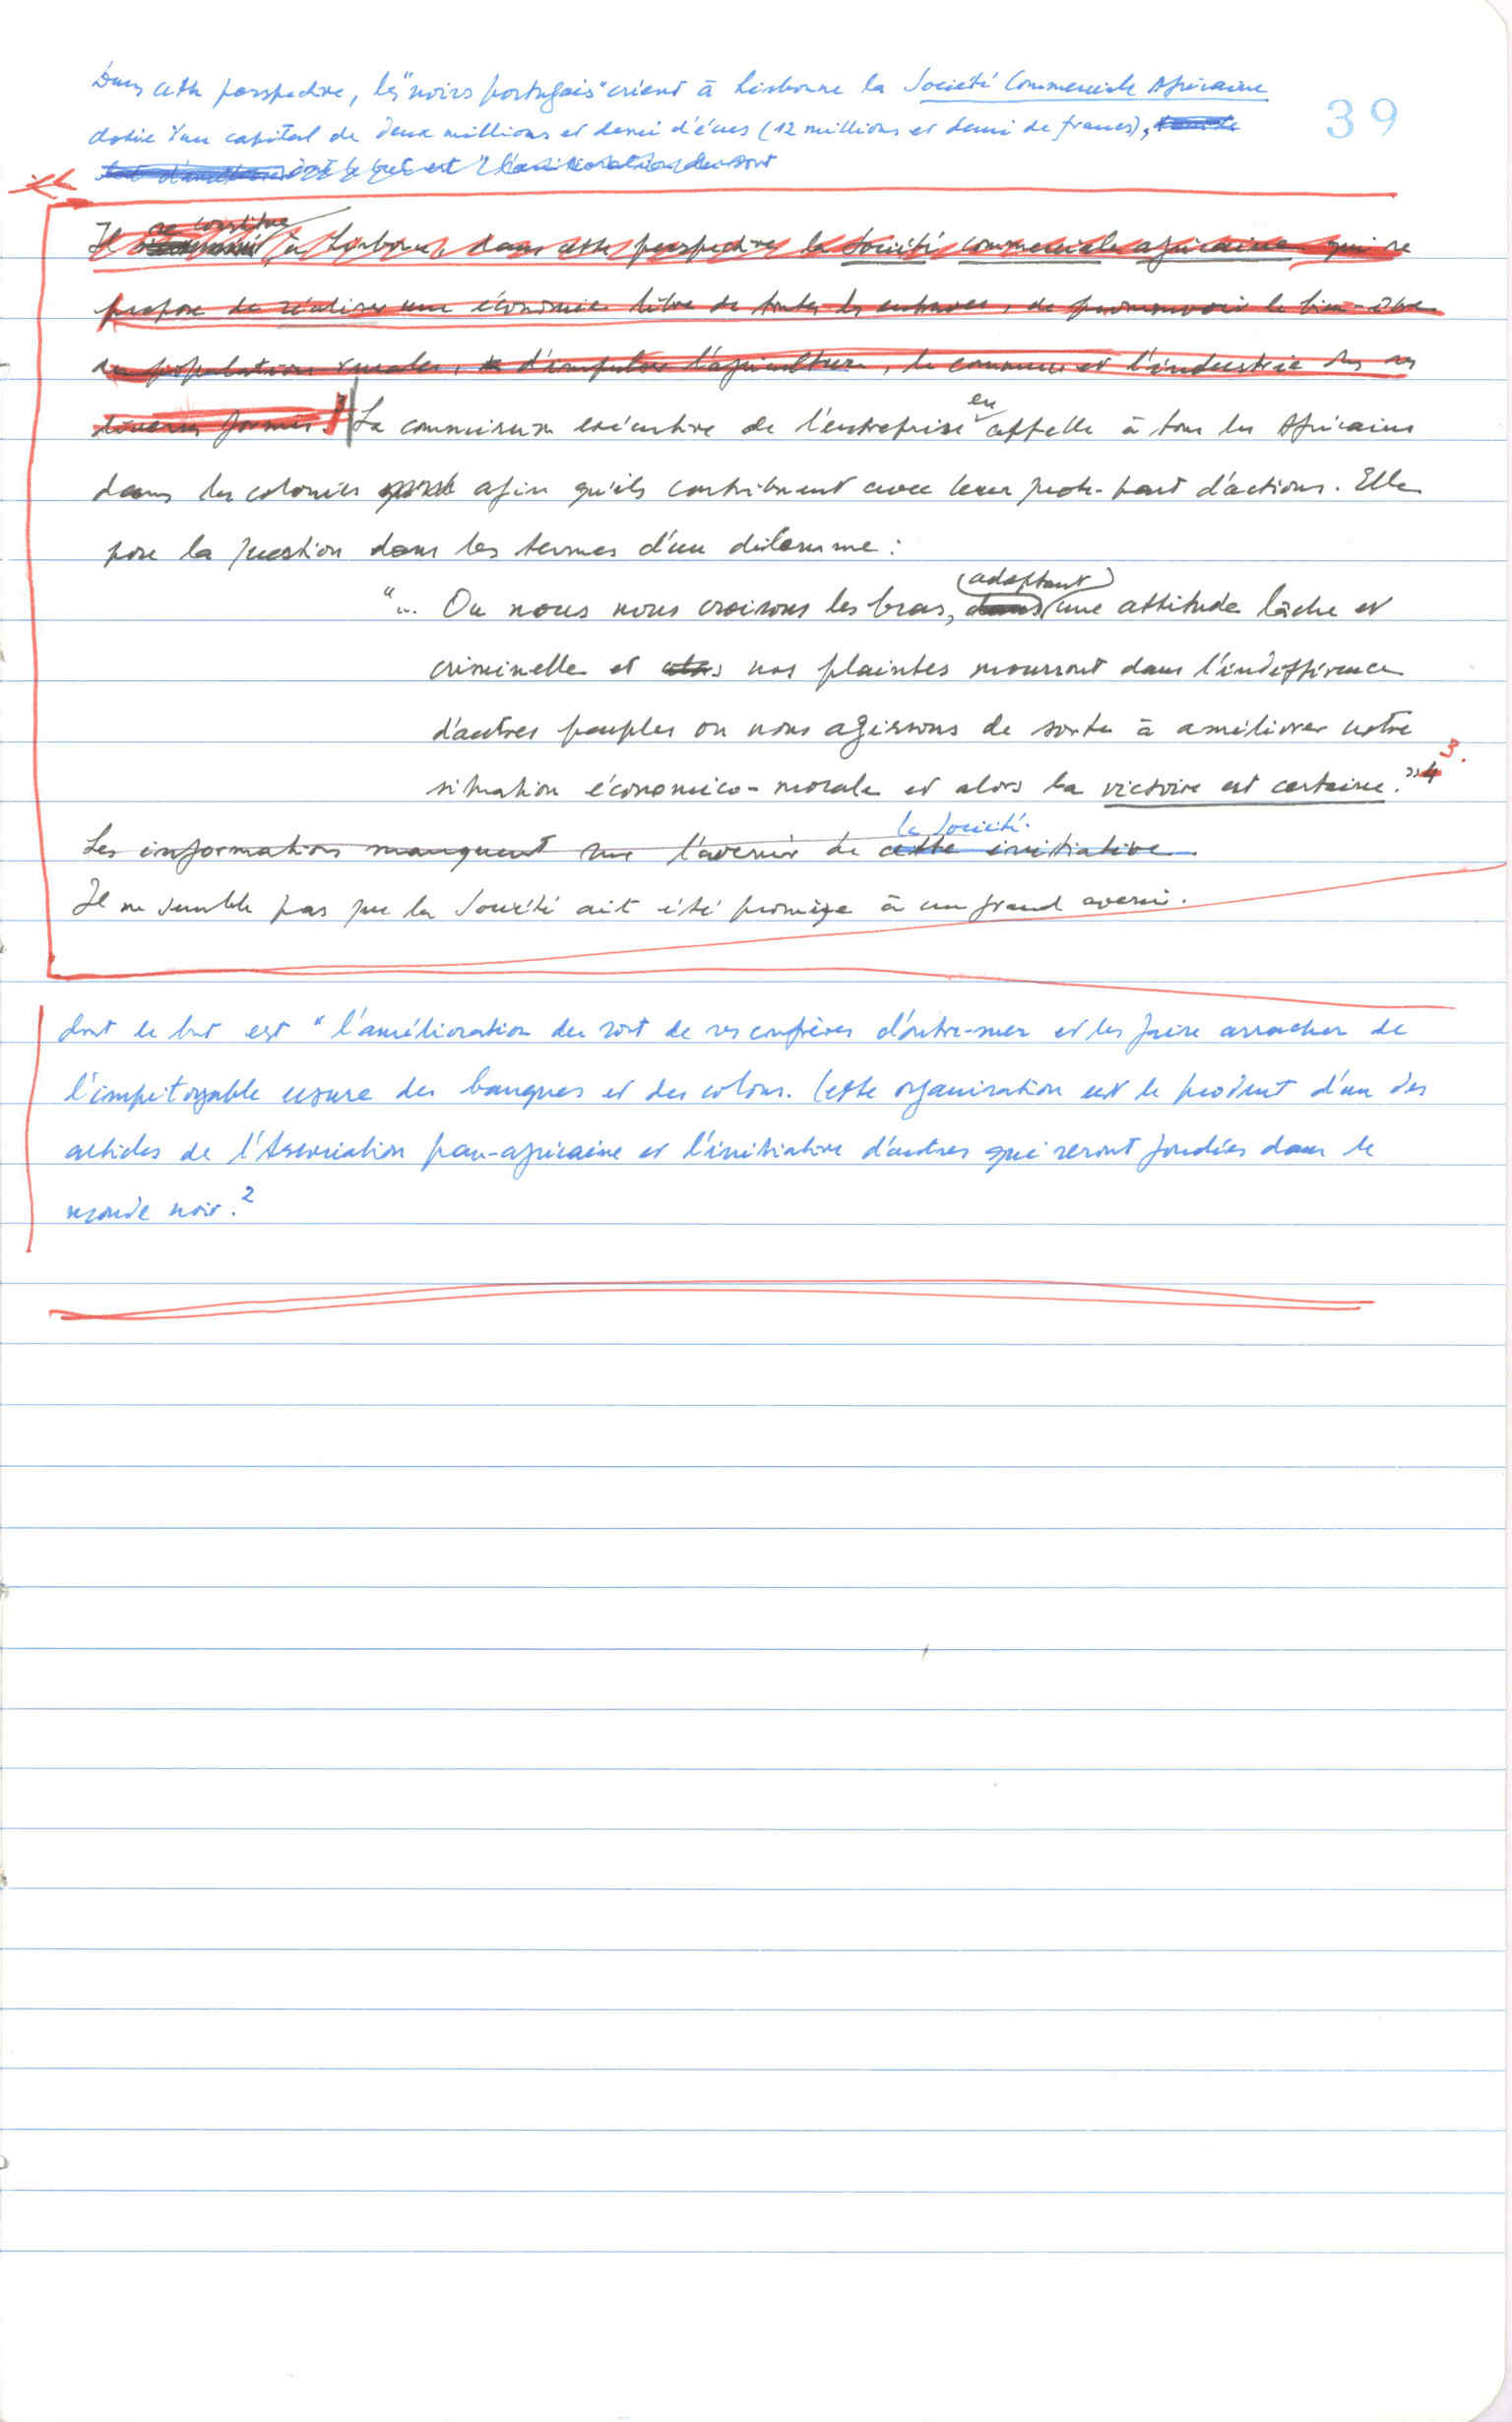 Dans cette perspective, les "noirs portugais" créent à Lisbonne la Société Commerciale Africaine
39
dotée d'un capital de deux millions et demi d'écus (12 millions et demi de francs),
dont le but est "l'amélioration du sort
se constitue
Il à Lisbonne, dans cette perspective la Société commerciale africaine qui se
propose de réaliser une économie libre de toutes les entraves, de promouvoir le bien-être
des populations rurales, d'impulser l'agriculture, le commerce et l'industrie sous ses
diverses formes. La commission exécutive de l'entreprise en appelle à tous les Africains
dans les colonies afin qu'ils contribuent avec leur quote-part d'actions. Elle
pose la question dans les termes d'un dilemme :
(adoptant)
"... Ou nous nous croisons les bras, dans une attitude lâche et
criminelle et alors nos plaintes mourront dans l'indifférence
d'autres peuples ou nous agissons de sorte à améliorer notre
situation économico-morale et alors la victoire est certaine." 4 3.
la Société.
Les informations manquent sur l'avenir de cette initiative
Il ne semble pas que la Société ait été promise à un grand avenir.
dont le but est "l'amélioration du sort de ses confrères d'outre-mer et les faire arracher de
l'impitoyable usure des banques et des colons. Cette organisation est le produit d'un des
articles de l'Association pan-africaine et l'initiative d'autres qui seront fondées dans le
monde noir. 2